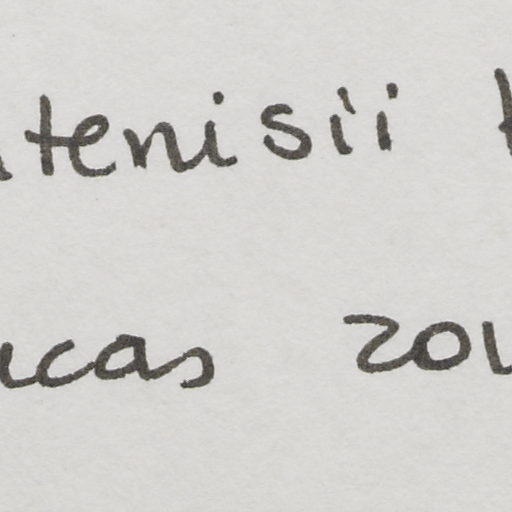 tenisii
cas zou